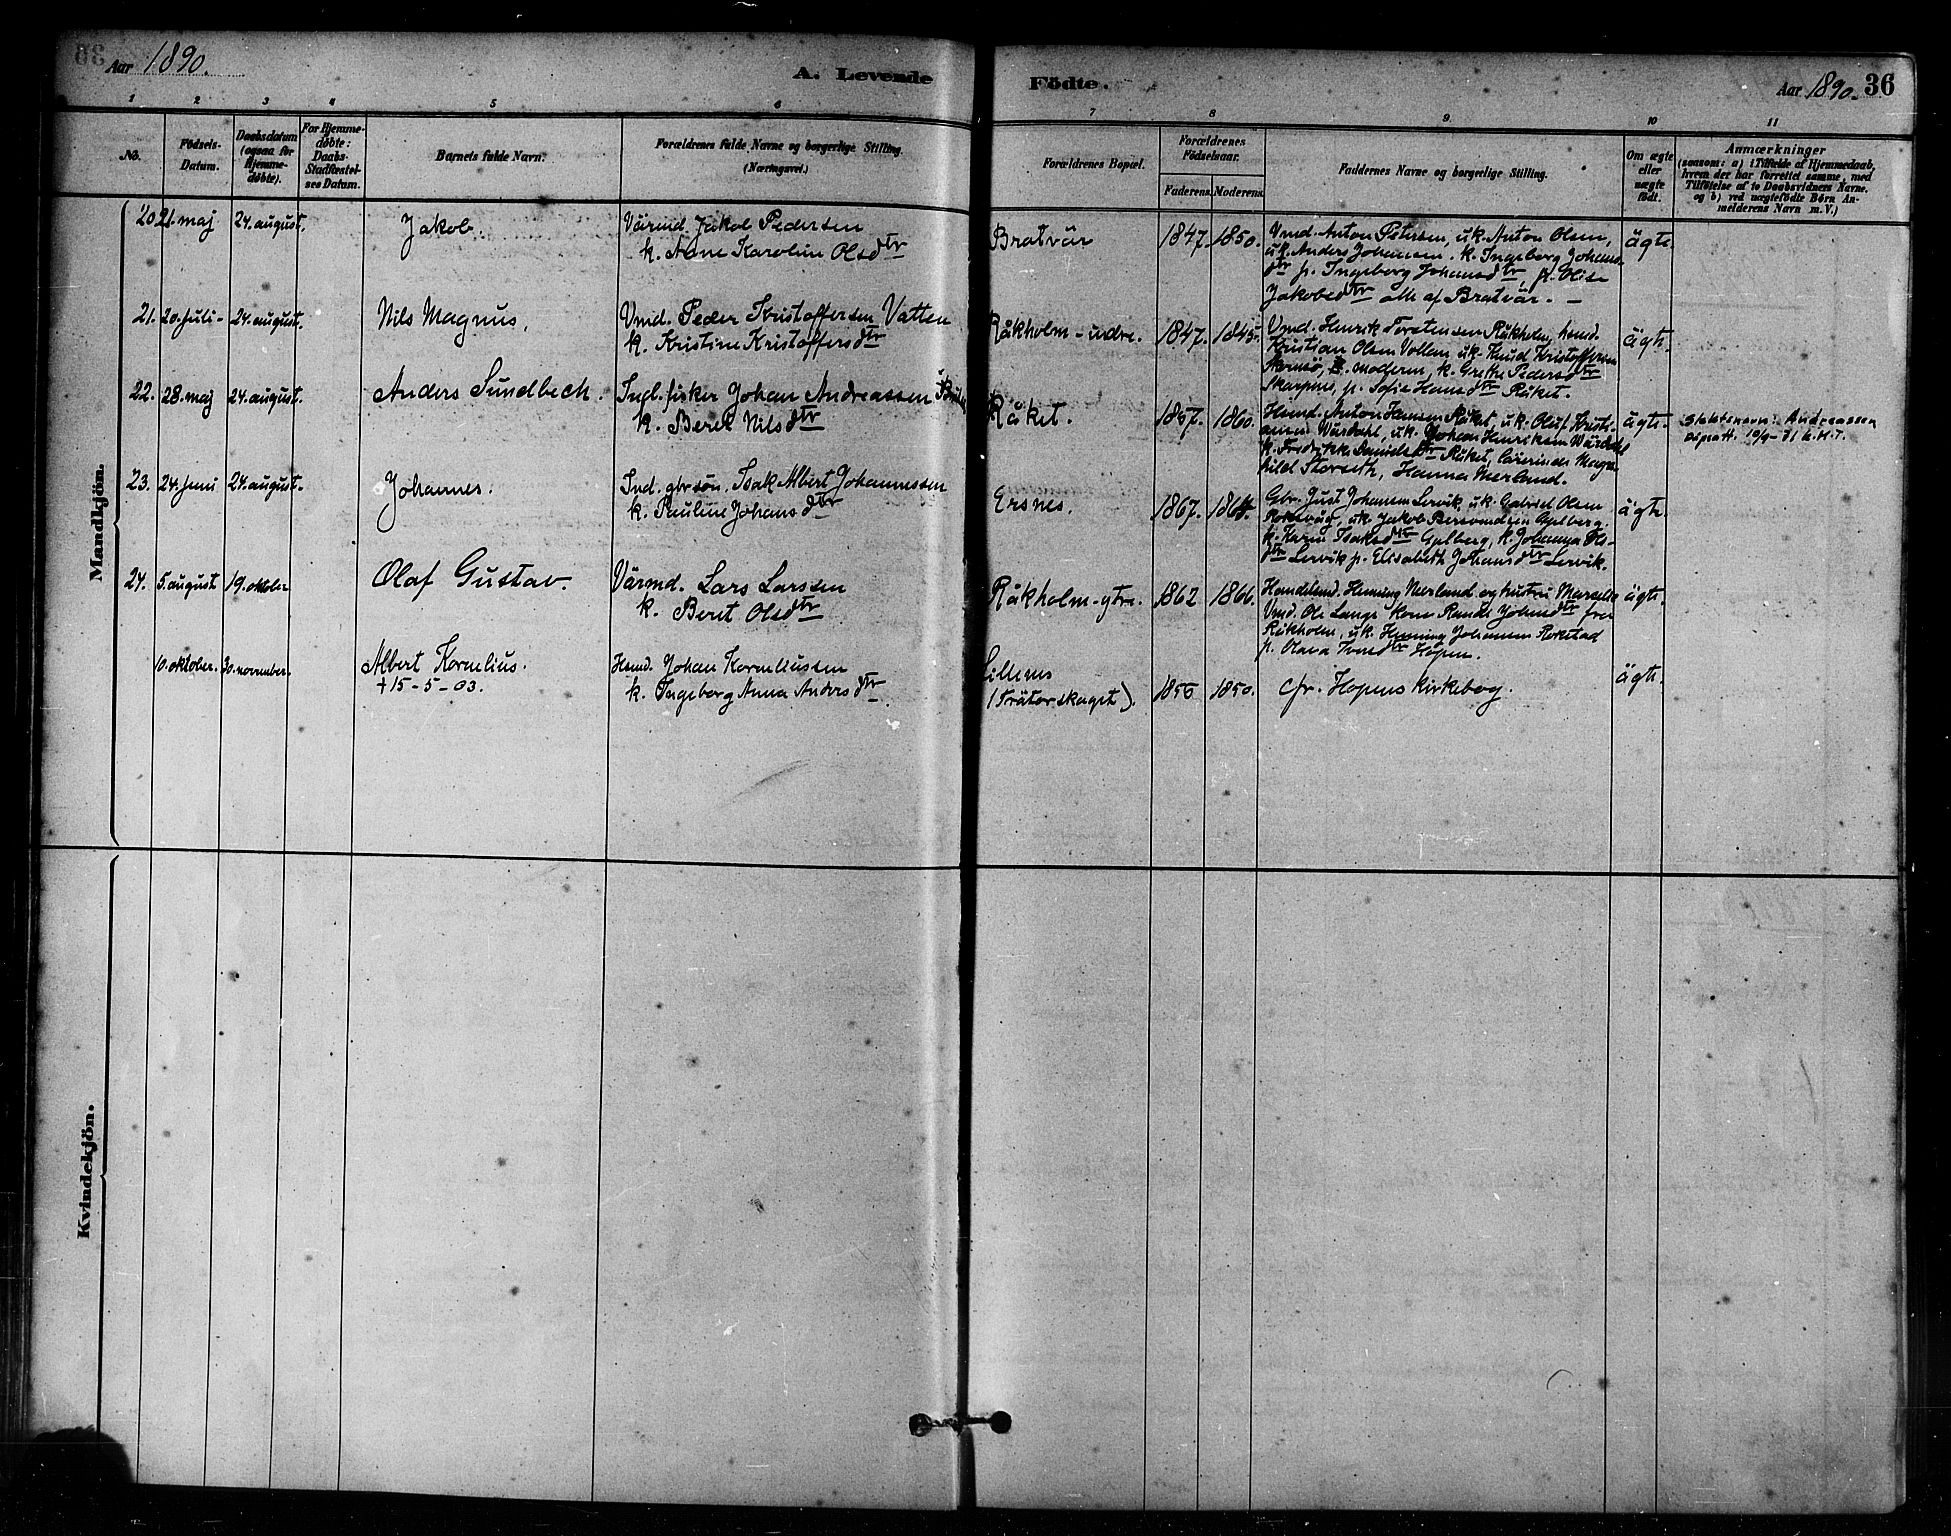 Aar 1890.
A. Levende
Födte.
Aar 1890. 36
1 2 3 4 5 6 7 8 9 10 11
No.
Födsels-
Datum.
Daabsdatum
(ogsaa for
Hjemme-
døbte).
For Hjemme-
døbte:
Daabs-
Stadfæstel-
ses Datum.
Barnets fulde Navn.
Forældrenes fulde Navne og borgerlige Stilling
(Næringsvei.)
Forældrenes Bopæl.
Forældrenes
Födselsaar.
Faderens. Moderens.
Faddernes Navne og borgerlige Stilling.
Om ægte
eller
uægte
født.
Anmærkninger
(saasom: a) i Tilfælde af Hjemmedaab,
hvem der har forrettet samme, med
Tilføielse af to Daabsvidners Navne.
og b) ved uægtefödte Börn An-
melderens Navn m. V.)
Mandkjön.
20. 21. maj 24. august. Jakob.
Värmd. Jakob Pedersen
k. Anne Karoline Olsdtr
Bratvär 1847. 1850.
Vmd. Anton Petersen, uk. Anton Olsen,
uk. Anders Johansen. k. Ingeborg Johans-
dtr p. Ingeborg Johansdtr p. Olise
Jakobsdtr alle af Bratvär. -
ägte.
21. 20. juli- 24. august. Nils Magnus,
Vmd. Peder Kristoffersen Vatten
k. Kristine Kristoffersdtr
Råkholm-indre. 1847. 1845.
Vmd. Henrik Torstensen Råkholm, hmd.
Kristian Olsen Vollen, uk. Knud Kristoffersen
moderen, k. Grethe Pedersdtr
Skarpnes, p. Sofie Hansdtr Råket.
ägte.
22. 28. maj 24. august. Anders Sundbech.
Indl. fisker Johan Andreassen
k. Beret Nilsdtr
Råket. 1857. 1860.
Husmd. Anton Hansen Råket, uk. Oluf Kristi-
ansen Wärdahl, uk. Johan Henriksen Wärdahl
k. Fredrikke Danielsdtr Råket, lärerinde Magn-
hild Storseth, Hanna Merland.
ägte.
Slektsnavn: Andreassen
19/9-31 G.H.T.
23. 24. juni 24. august. Johannes.
Ind. gbr.søn. Isak Albert Johannessen
k. Pauline Johansdtr
Ersnes. 1867. 1864.
Gbr. Just Johansen Lervik, uk. Gabriel Olsen
uk. Jakob Gjelberg.
k. Karen Isaksdtr Gjelberg, k. Johanna Ols-
dtr Lervik p. Elisabeth Johansdtr Lervik.
ägte.
24. 5. august 19. oktober Olaf Gustav.
Värmd. Lars Larssen
k. Beret Olsdtr
Råkholm-ytre. 1862 1866.
Handelsmd. Henning Merland og hustru Marselie
Vmd. Ole Lange kone Randi Johnsdtr fra
Råkholm, uk. Henning Johansen Rokstad
p. Olava Iversdtr Hopen.
ägte.
10. oktober. 30. november. Albert Kornelius.
+ 15-5-03.
Husmd. Johan Korneliussen
k. Ingeborg Anna Andersdtr.
Lillenes
(Trätorskaget). 1856 1850.
cfr. Hopens kirkebog.
ägte.
Kvindekjön.